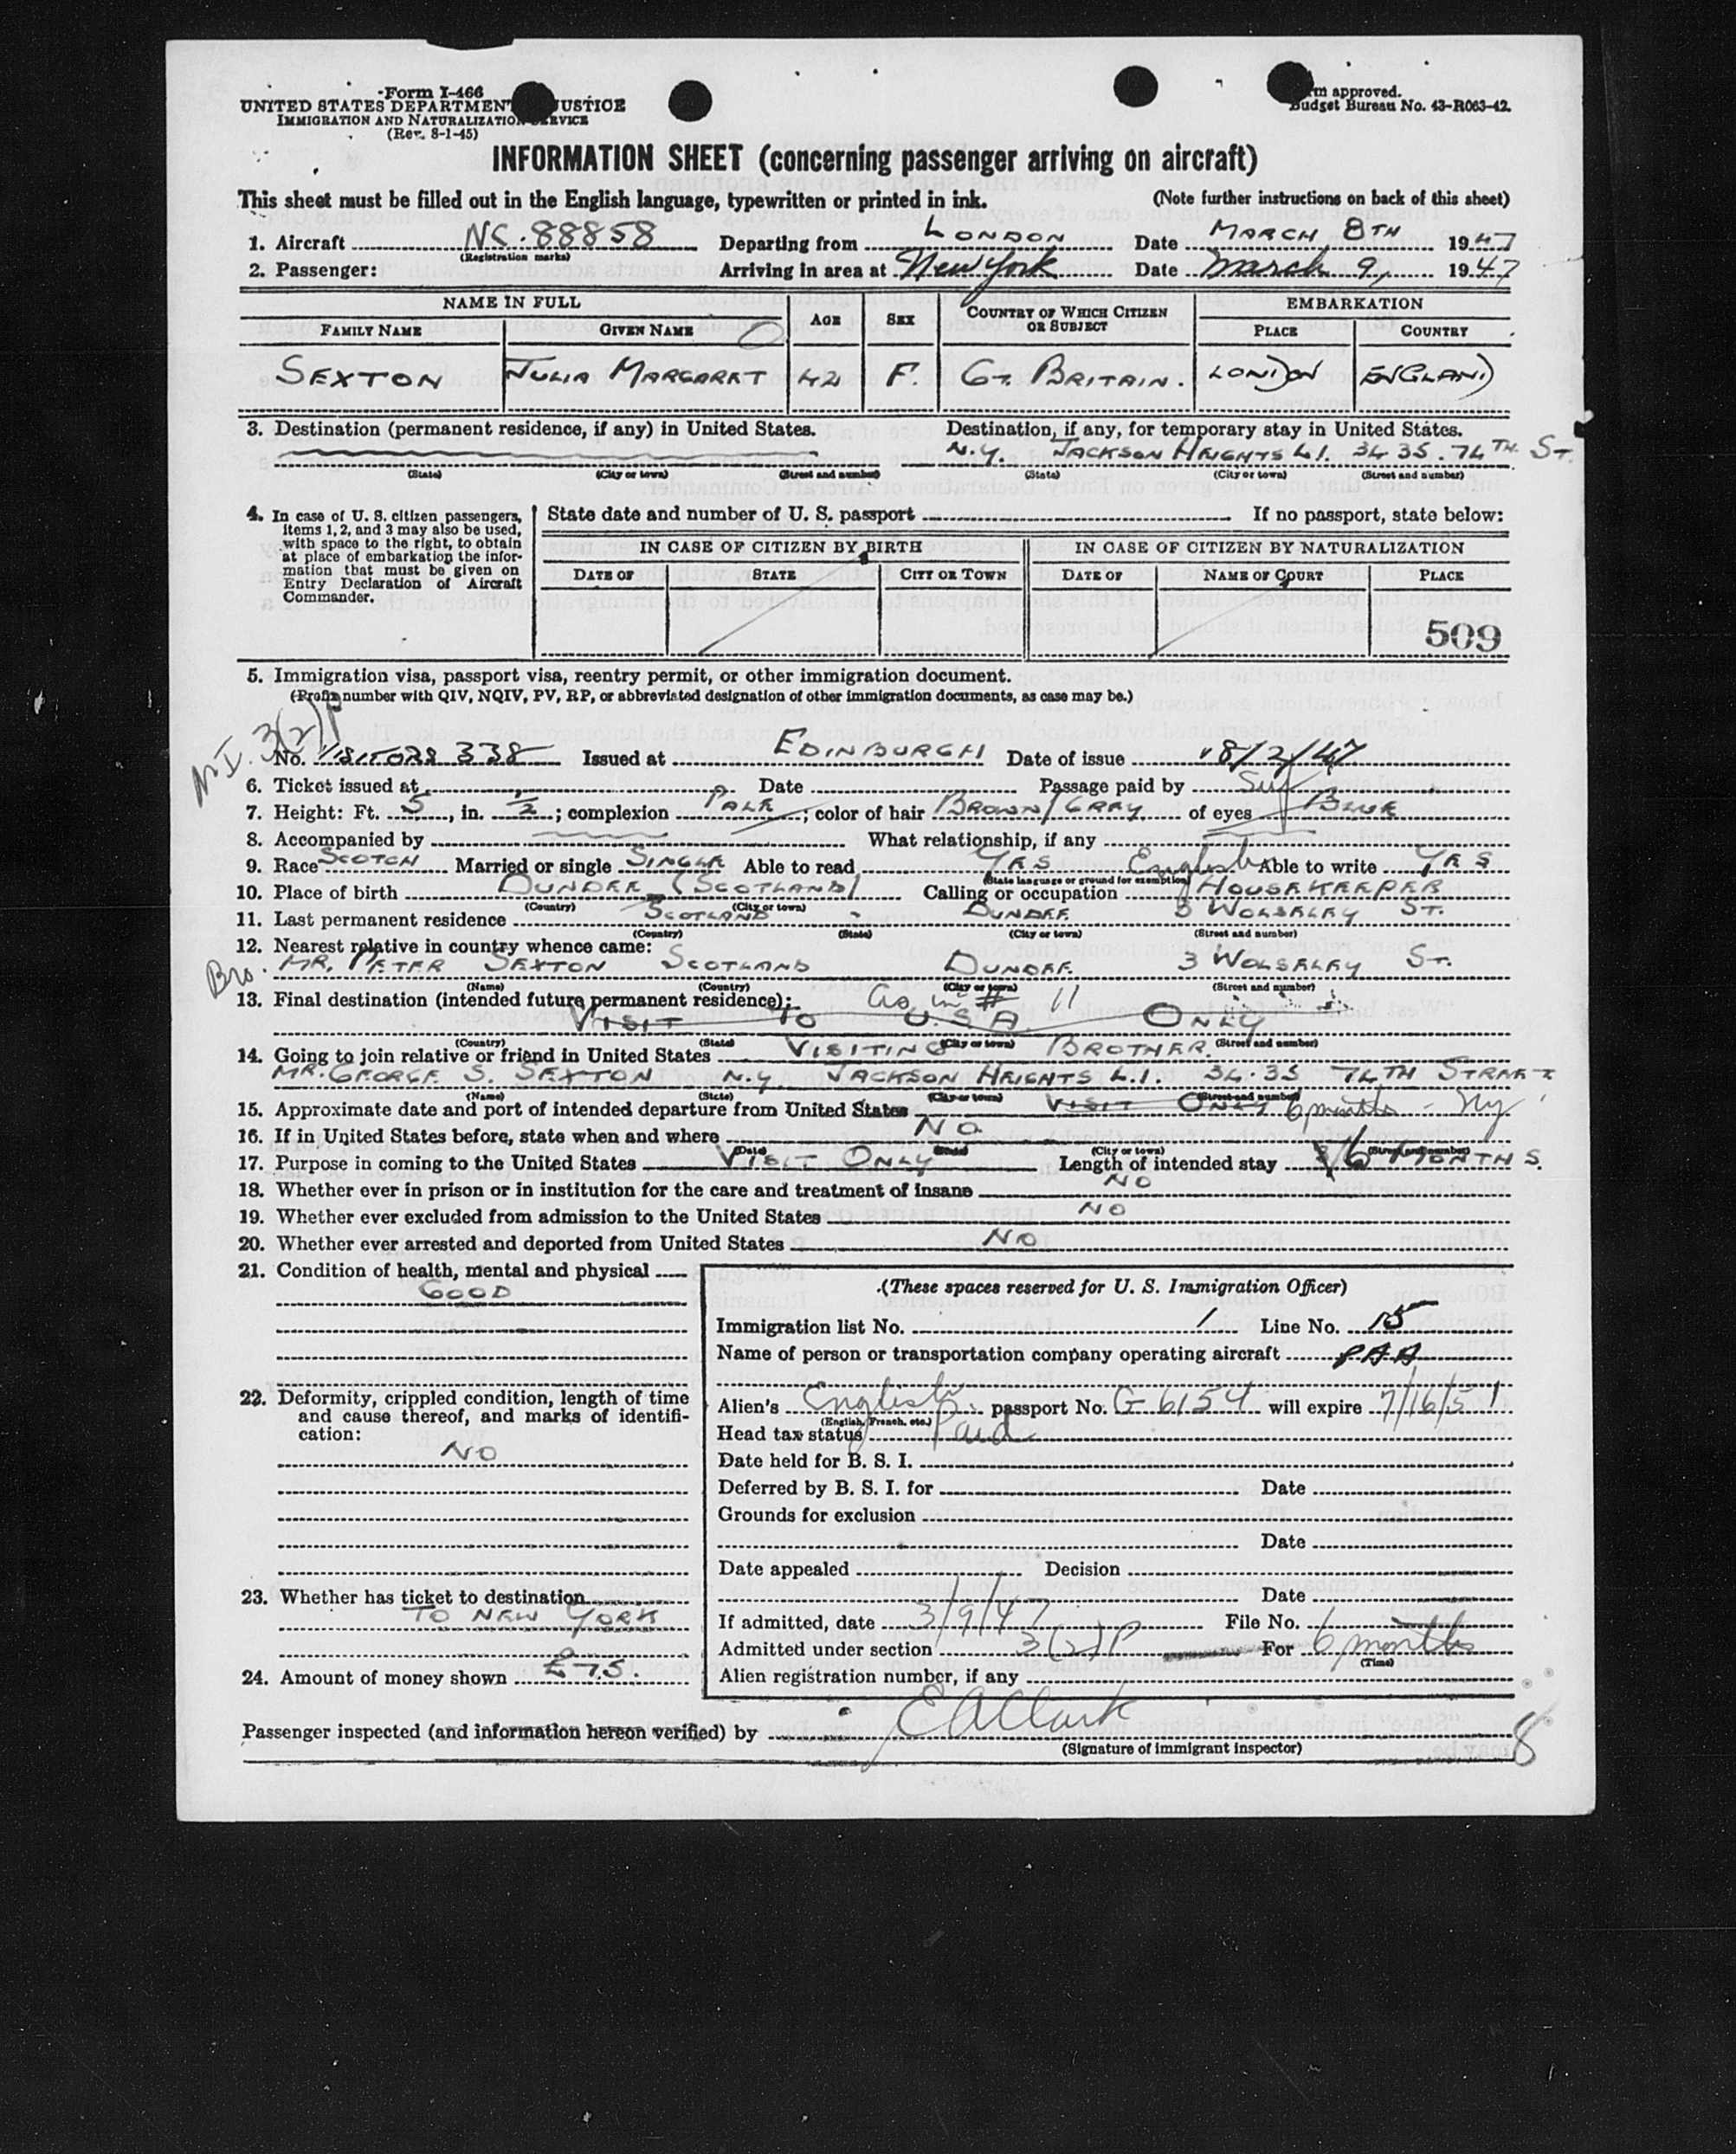 Form I-466
UNITED STATES DEPARTMENT JUSTICE
IMMIGRATION AND NATURALIZATION SERVICE
(Rev. 8-1-45)
approved.
Budget Bureau No. 43-R063-42.
INFORMATION SHEET (concerning passenger arriving on aircraft)
This sheet must be filled out in the English language, typewritten or printed in ink. (Note further instructions on back of this sheet)
1. Aircraft NC.88858 Departing from LONDON Date MARCH 8TH 1947
(Registration marks)
2. Passenger: Arriving in area at New York Date March 9, 1947
NAME IN FULL AGE SEX COUNTRY OF WHICH CITIZEN OR SUBJECT EMBARKATION
FAMILY NAME GIVEN NAME PLACE COUNTRY
SEXTON JULIA MARGARET 42 F. GT. BRITAIN. LONDON ENGLAND
3. Destination (permanent residence, if any) in United States. Destination, if any, for temporary stay in United States.
N.Y. JACKSON HEIGHTS L.I. 3435. 74TH ST.
(State) (City or town) (Street and number) (State) (City or town) (Street and number)
4. In case of U. S. citizen passengers, items 1, 2, and 3 may also be used, with space to the right, to obtain at place of embarkation the information that must be given on Entry Declaration of Aircraft Commander.
State date and number of U. S. passport If no passport, state below:
IN CASE OF CITIZEN BY BIRTH IN CASE OF CITIZEN BY NATURALIZATION
DATE OF STATE CITY OR TOWN DATE OF NAME OF COURT PLACE
509
5. Immigration visa, passport visa, reentry permit, or other immigration document.
(Prefix number with QIV, NQIV, PV, RP, or abbreviated designation of other immigration documents, as case may be.)
3(2)P
No. VISITORS 338 Issued at EDINBURGH Date of issue 18/2/47
6. Ticket issued at Date Passage paid by Self
7. Height: Ft. 5, in. 1/2; complexion PALE; color of hair BROWN/GRAY of eyes BLUE
8. Accompanied by What relationship, if any
9. Race SCOTCH Married or single SINGLE Able to read YES English Able to write YES
(State language or ground for exemption)
10. Place of birth DUNDEE (SCOTLAND) Calling or occupation HOUSEKEEPER
(Country) (City or town)
11. Last permanent residence SCOTLAND - DUNDEE 3 WOLSELEY ST.
(Country) (State) (City or town) (Street and number)
12. Nearest relative in country whence came:
Bro. MR. PETER SEXTON SCOTLAND DUNDEE 3 WOLSELEY ST.
(Name) (Country) (City or town) (Street and number)
13. Final destination (intended future permanent residence): as in # 11
VISIT TO U.S.A. ONLY
(Country) (State) (City or town) (Street and number)
14. Going to join relative or friend in United States VISITING BROTHER.
MR. GEORGE S. SEXTON N.Y. JACKSON HEIGHTS L.I. 34.35 74TH STREET
(Name) (State) (City or town) (Street and number)
15. Approximate date and port of intended departure from United States VISIT ONLY 6 months - NY
16. If in United States before, state when and where NO
(Date) (State) (City or town) (Street and number)
17. Purpose in coming to the United States VISIT ONLY Length of intended stay 6 MONTHS.
18. Whether ever in prison or in institution for the care and treatment of insane NO
19. Whether ever excluded from admission to the United States NO
20. Whether ever arrested and deported from United States NO
21. Condition of health, mental and physical
GOOD
22. Deformity, crippled condition, length of time and cause thereof, and marks of identification:
NO
23. Whether has ticket to destination
TO NEW YORK
24. Amount of money shown £75.
(These spaces reserved for U. S. Immigration Officer)
Immigration list No. 1 Line No. 15
Name of person or transportation company operating aircraft PAA
Alien's English passport No. G 6154 will expire 7/16/51
(English, French, etc.)
Head tax status Paid
Date held for B. S. I.
Deferred by B. S. I. for Date
Grounds for exclusion
Date
Date appealed Decision
Date
If admitted, date 3/9/47 File No.
Admitted under section 3(2)P For 6 months
(Time)
Alien registration number, if any
Passenger inspected (and information hereon verified) by E A Clark
(Signature of immigrant inspector)
8